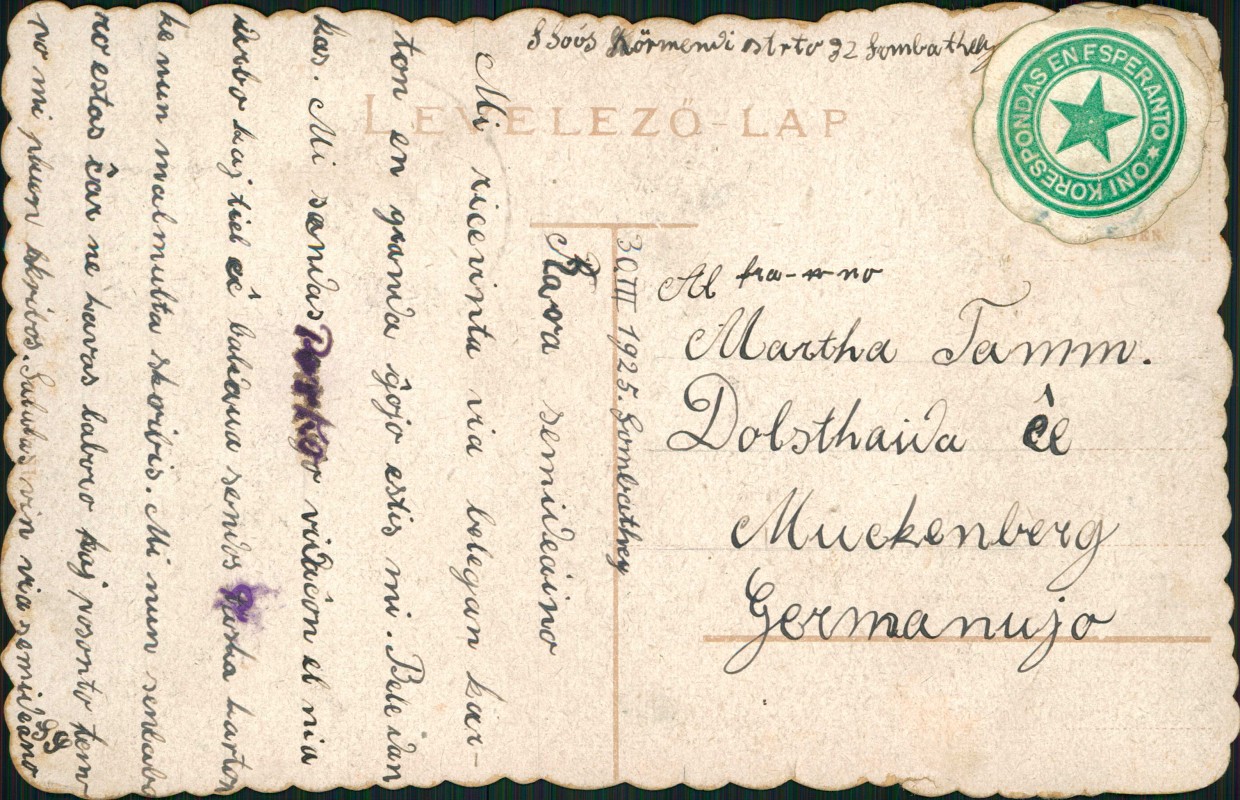 S Soós Körmendi strto 32 Sombathely
LEVELEZŐ-LAP
ONI KORESPONDAS EN ESPERANTO
30 III 1925. Sombathely
Kara samideino
Mi ricevintu via belegan kar-
ton en granda ĝojo estis mi. Bele dan
kas. Mi sendas vidaĵon el nia
urbo kaj tiel ĉi baldaŭa sendos karton
ke nun malmulta skribis. Mi nun senlabo
ro estas ĉar ne havas laboro kaj posonto tem
po mi pluen skribos. Salutas vin via samideano
SS
Al fra-w-no
Martha Tamm.
Dolsthaida ĉe
Muckenberg
Germanujo